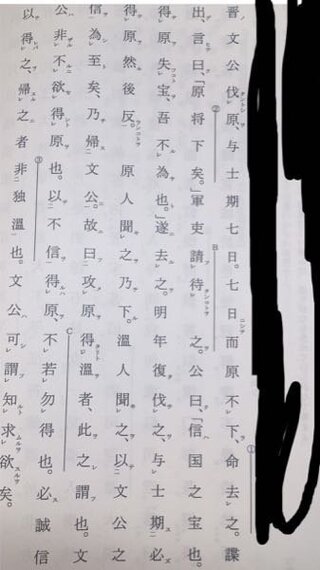 晋文公伐原、与士期七日。七日而原不下、①命去之。諜
出、言曰、②「原将下矣。」軍吏B請待之。公曰、「信国之宝也。
得原失宝、吾不為也。」遂去之。明年復伐之、与士期必
得原然後反。原人聞之乃下。溫人聞之、以文公之
信為至矣、乃帰文公。故曰攻原C得溫者、此之謂也。文
公非不欲得原也。③以不信得原、不若勿得也。必誠信
以得之、帰之者非独溫也。文公可謂知求欲矣。